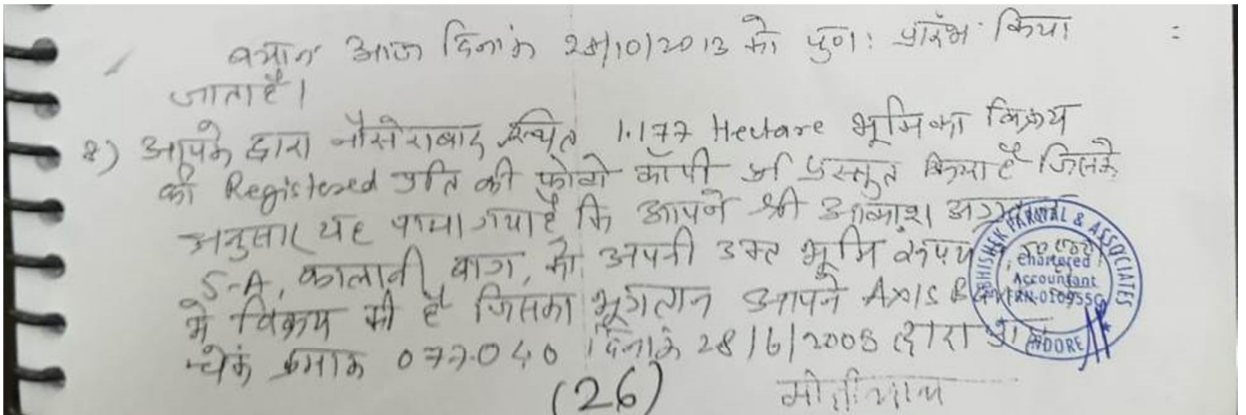 बयान आज दिनांक 28/10/2013 को पुण: प्रारंभ किया
जाता है।
8) आपके द्वारा नौसेराबाद स्थित 1.177 Hectare भूमि का विक्रय
की Registered प्रति की फोटो कॉपी प्रस्तुत किया है जिसके
अनुसार यह पाया गया है कि आपने श्री आकाश
5-A, कालानी बाग, को अपनी उक्त भूमि
में विक्रय की है जिसका भूगतान आपने AXIS
चेक क्रमांक 077040 दिनांक 28/6/2008 द्वारा
(26)
ABHISHEK PARWAL & ASSOCIATES
Chartered
Accountant
INDORE